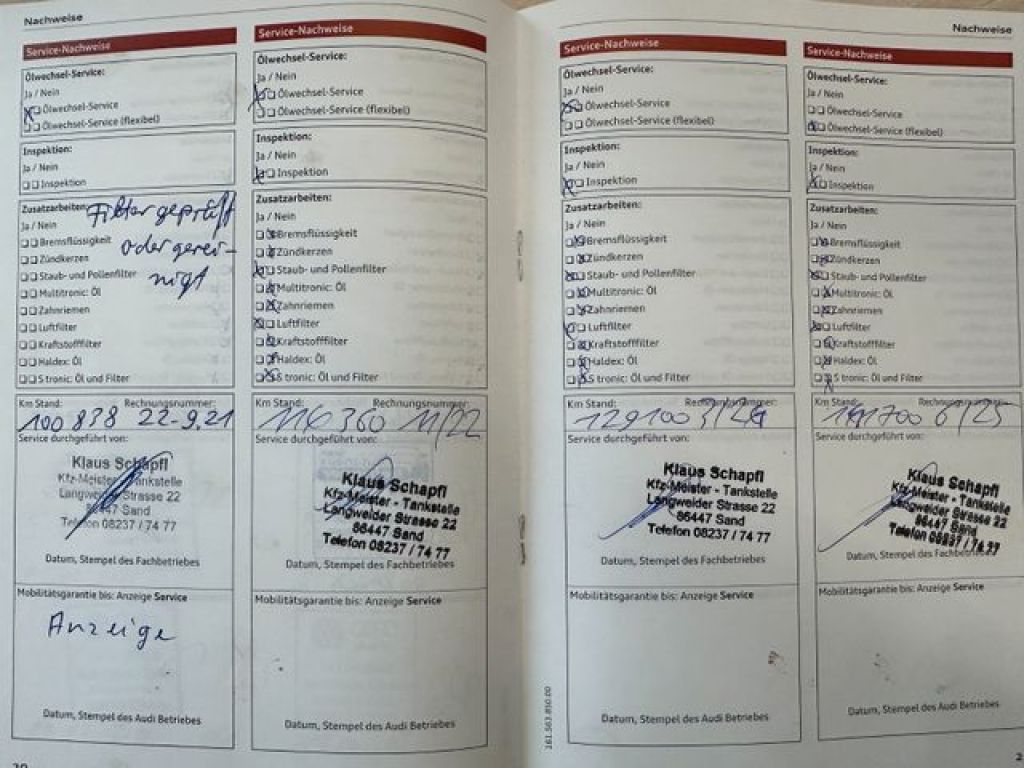 Nachweise
Service-Nachweise
Ölwechsel-Service:
Ja / Nein
Ölwechsel-Service
Ölwechsel-Service (flexibel)
Inspektion:
Ja / Nein
Inspektion
Zusatzarbeiten: Filter geprüft
Ja / Nein
Bremsflüssigkeit oder gerei-
Zündkerzen
Staub- und Pollenfilter nigt
Multitronic: Öl
Zahnriemen
Luftfilter
Kraftstofffilter
Haldex: Öl
S tronic: Öl und Filter
Km Stand: Rechnungsnummer:
100 838 22-9.21
Service durchgeführt von:
Klaus Schapfl
Kfz-Meister - Tankstelle
Langweider Strasse 22
86447 Sand
Telefon 08237 / 74 77
Datum, Stempel des Fachbetriebes
Mobilitätsgarantie bis: Anzeige Service
Anzeige
Datum, Stempel des Audi Betriebes
20
Service-Nachweise
Ölwechsel-Service:
Ja / Nein
Ölwechsel-Service
Ölwechsel-Service (flexibel)
Inspektion:
Ja / Nein
Inspektion
Zusatzarbeiten:
Ja / Nein
Bremsflüssigkeit
Zündkerzen
Staub- und Pollenfilter
Multitronic: Öl
Zahnriemen
Luftfilter
Kraftstofffilter
Haldex: Öl
S tronic: Öl und Filter
Km Stand: Rechnungsnummer:
116 360 11/22
Service durchgeführt von:
Klaus Schapfl
Kfz-Meister - Tankstelle
Langweider Strasse 22
86447 Sand
Telefon 08237 / 74 77
Datum, Stempel des Fachbetriebes
Mobilitätsgarantie bis: Anzeige Service
Datum, Stempel des Audi Betriebes
Nachweise
Service-Nachweise
Ölwechsel-Service:
Ja / Nein
Ölwechsel-Service
Ölwechsel-Service (flexibel)
Inspektion:
Ja / Nein
Inspektion
Zusatzarbeiten:
Ja / Nein
Bremsflüssigkeit
Zündkerzen
Staub- und Pollenfilter
Multitronic: Öl
Zahnriemen
Luftfilter
Kraftstofffilter
Haldex: Öl
S tronic: Öl und Filter
Km Stand: Rechnungsnummer:
129100 3/24
Service durchgeführt von:
Klaus Schapfl
Kfz-Meister - Tankstelle
Langweider Strasse 22
86447 Sand
Telefon 08237 / 74 77
Datum, Stempel des Fachbetriebes
Mobilitätsgarantie bis: Anzeige Service
Datum, Stempel des Audi Betriebes
161.563.850.00
Service-Nachweise
Ölwechsel-Service:
Ja / Nein
Ölwechsel-Service
Ölwechsel-Service (flexibel)
Inspektion:
Ja / Nein
Inspektion
Zusatzarbeiten:
Ja / Nein
Bremsflüssigkeit
Zündkerzen
Staub- und Pollenfilter
Multitronic: Öl
Zahnriemen
Luftfilter
Kraftstofffilter
Haldex: Öl
S tronic: Öl und Filter
Km Stand: Rechnungsnummer:
6/25
Service durchgeführt von:
Klaus Schapfl
Kfz-Meister - Tankstelle
Langweider Strasse 22
86447 Sand
Telefon 08237 / 74 77
Datum, Stempel des Fachbetriebes
Mobilitätsgarantie bis: Anzeige Service
Datum, Stempel des Audi Betriebes